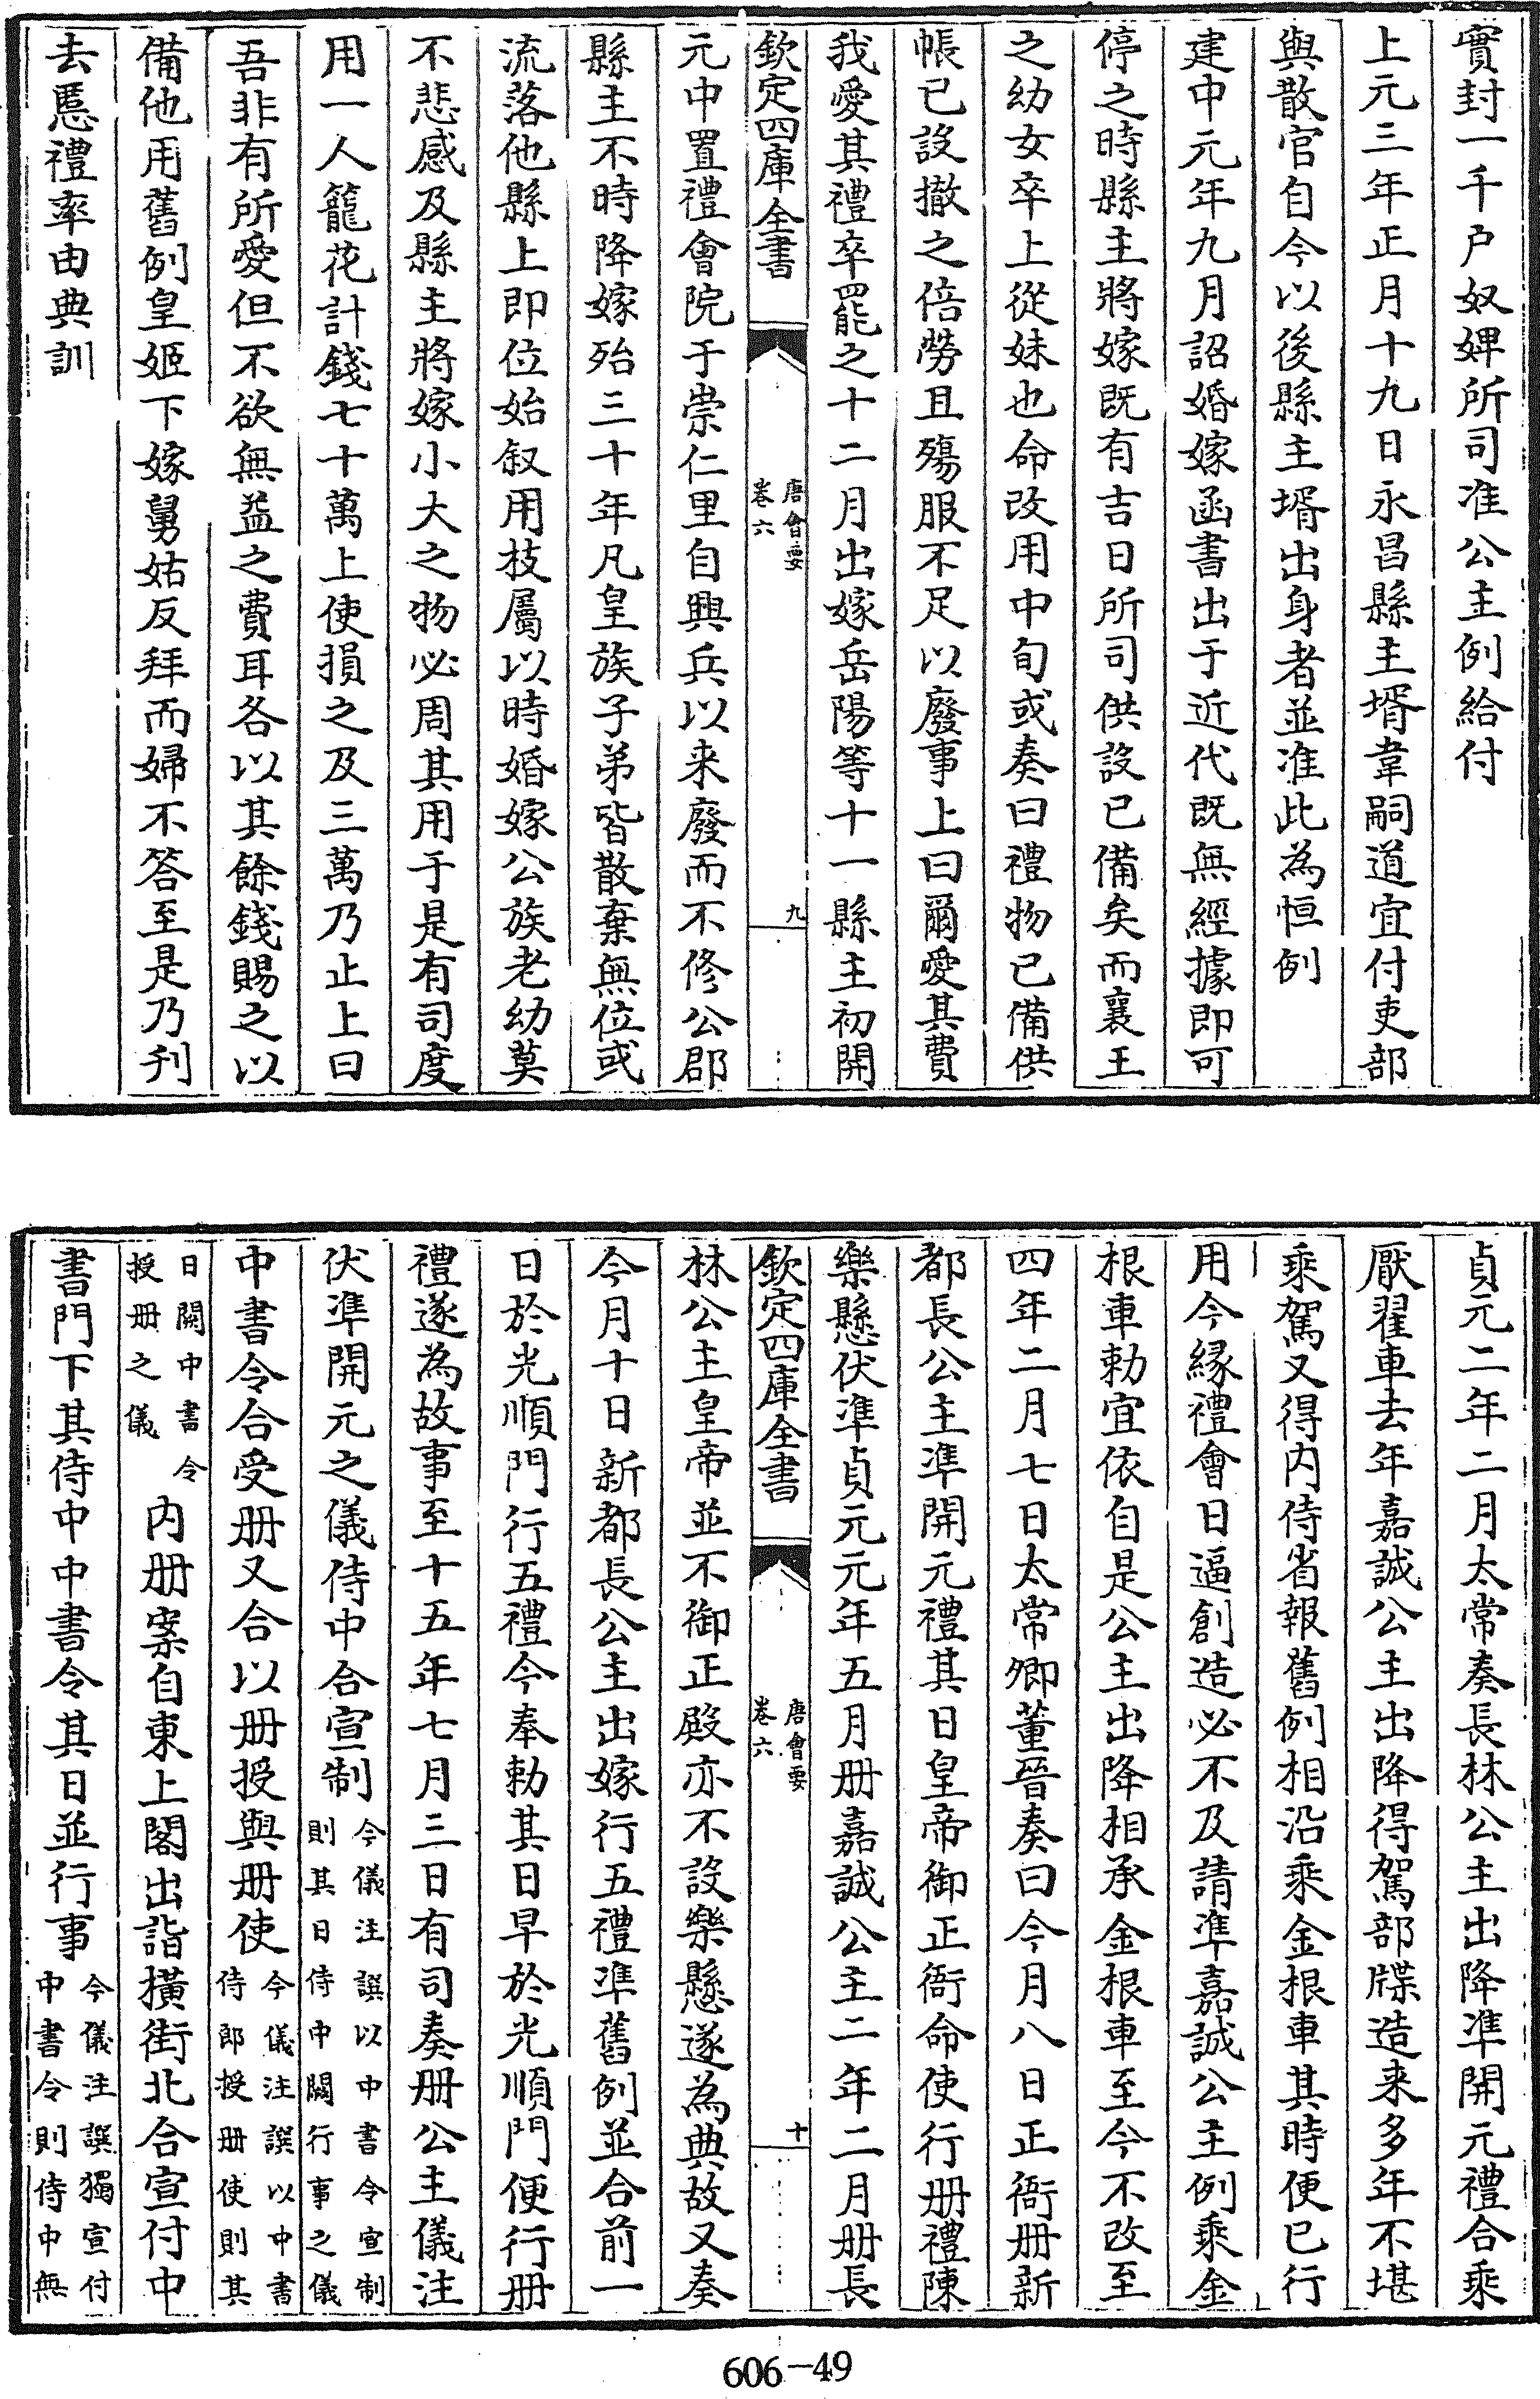 實封一千户奴婢所司准公主例給付
上元三年正月十九日永昌縣主壻韋嗣道宜付吏部
與散官自今以後縣主壻出身者並准此為恒例
建中元年九月詔婚嫁函書出于近代既無經據即可
停之時縣主將嫁既有吉日所司供設已備矣而襄王
之幼女卒上從妹也命改用中旬或奏曰禮物已備供
帳已設撤之倍勞且殤服不足以廢事上曰爾愛其費
我愛其禮卒罷之十二月出嫁岳陽等十一縣主初開
欽定四庫全書
唐會要
卷六
九
元中置禮會院于崇仁里自興兵以来廢而不修公郡
縣主不時降嫁殆三十年凡皇族子弟皆散棄無位或
流落他縣上即位始叙用枝屬以時婚嫁公族老幼莫
不悲感及縣主將嫁小大之物必周其用于是有司度
用一人籠花計錢七十萬上使損之及三萬乃止上曰
吾非有所愛但不欲無益之費耳各以其餘錢賜之以
備他用舊例皇姬下嫁舅姑反拜而婦不答至是乃刋
去慝禮率由典訓
貞元二年二月太常奏長林公主出降準開元禮合乘
厭翟車去年嘉誠公主出降得駕部牒造来多年不堪
乘駕又得内侍省報舊例相沿乘金根車其時便已行
用今緣禮會日逼創造必不及請準嘉誠公主例乘金
根車勅宜依自是公主出降相承金根車至今不改至
四年二月七日太常卿董晉奏曰今月八日正衙册新
都長公主準開元禮其日皇帝御正衙命使行册禮陳
樂懸伏準貞元元年五月册嘉誠公主二年二月册長
欽定四庫全書
唐會要
卷六
十
林公主皇帝並不御正殿亦不設樂懸遂為典故又奏
今月十日新都長公主出嫁行五禮準舊例並合前一
日於光順門行五禮今奉勅其日早於光順門便行册
禮遂為故事至十五年七月三日有司奏册公主儀注
伏準開元之儀侍中合宣制今儀注誤以中書令宣制則其日侍中闕行事之儀
中書令合受册又合以册授與册使今儀注誤以中書侍郎授册使則其
日闕中書令授册之儀内册案自東上閣出詣橫街北合宣付中
書門下其侍中中書令其日並行事今儀注誤獨宣付中書令則侍中無
606-49